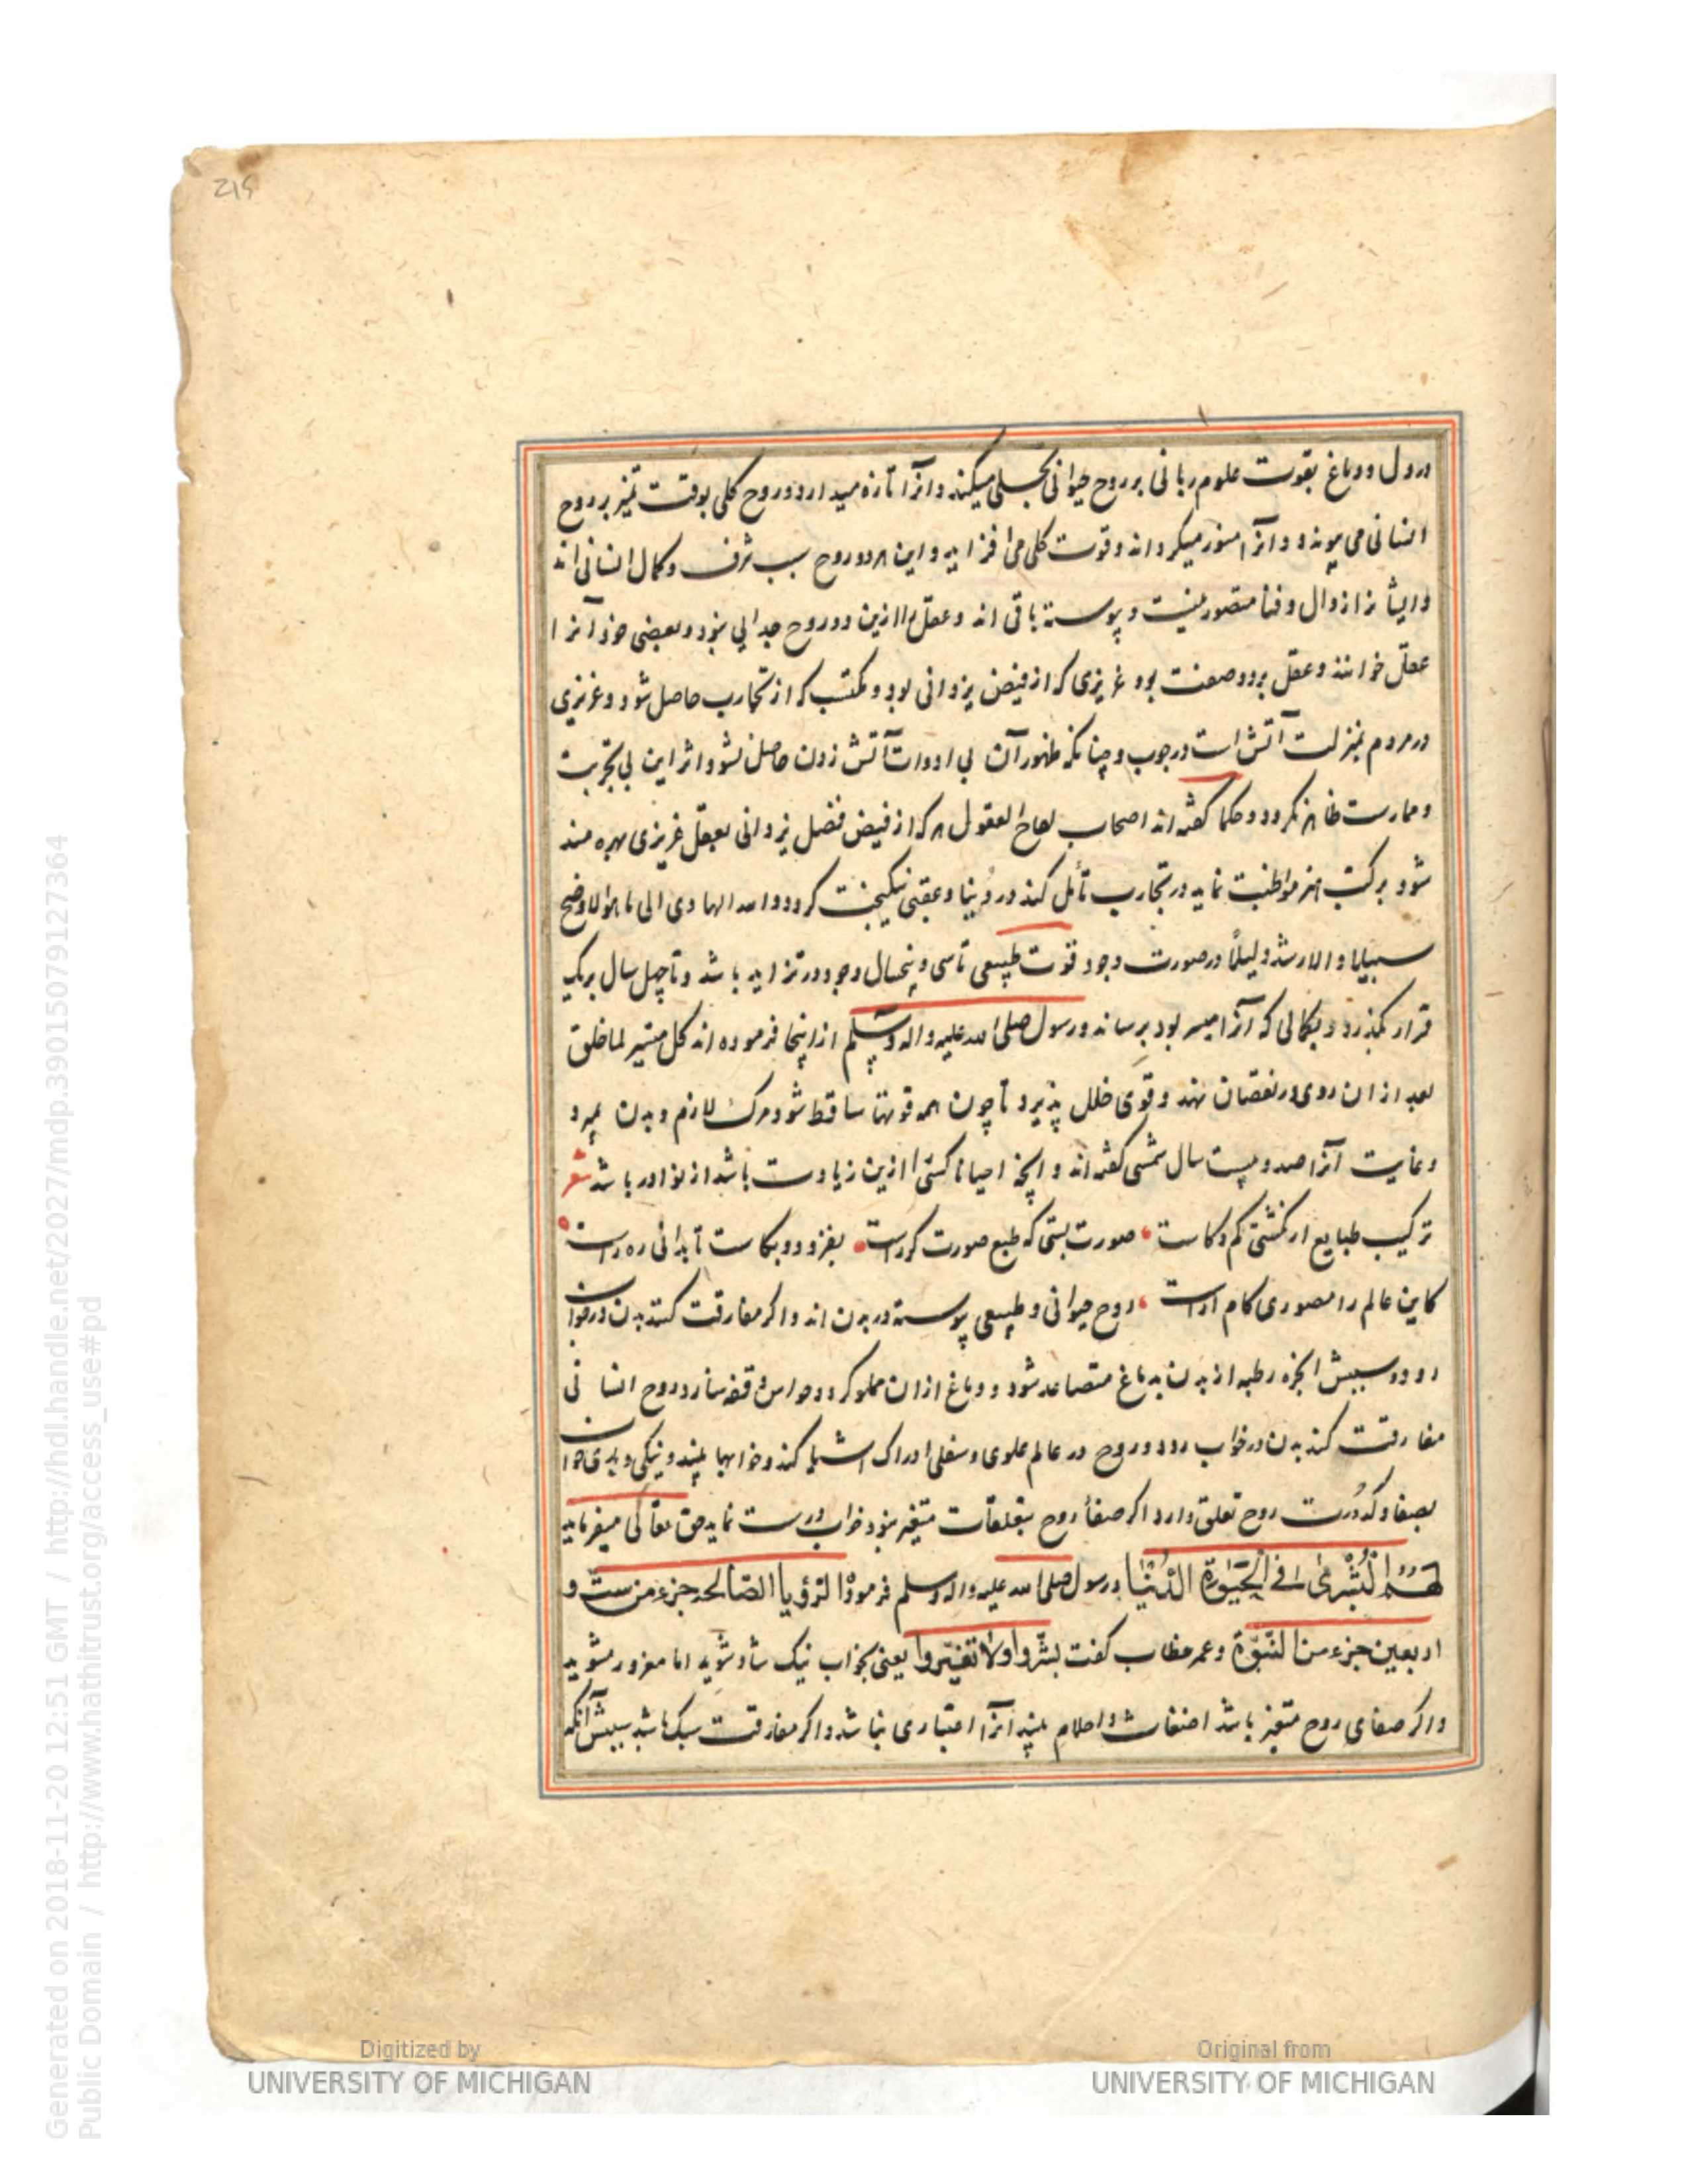 215
در دل و دماغ بقوت علوم ربانی بر روح حیوانی تجلی میکند و آنرا تازه میدارد و روح کلی بوقت تمیز بر روح
انسانی می پیوندد و آنرا منور میکرداند و قوت کلی می افزاید و این هر دو روح سبب شرف و کمال انسانی اند
و ایشانرا زوال و فنا متصور نیست و پیوسته باقی اند و عقل را ازین دو روح جدایی نبود و بعضی خود آنرا
عقل خوانند و عقل بر دو صفت بود غریزی که از فیض یزدانی بود و مکتسب که از تجارب حاصل شود و غریزی
در مردم بمنزلت آتش است در چوب و چنانکه ظهور آن بی ادوات آتش زدن حاصل نشود اثر این بی تجربت
و ممارست ظاهر نکردد و حکما کفته اند اصحاب لقاح العقول هر که از فیض فضل یزدانی بعقل غریزی بهره مند
شود بر کسب هنر مواظبت نماید در تجارب تأمل کند در دنیا و عقبی نیکبخت کردد و الله الهادی الی ما هو الاوضح
سبیلا و الارشد دلیلا در صورت وجود قوت طبیعی تا سی و پنجسال وجود در تزاید باشد و تا چهل سال بریک
قرار بگذرد و بکمالی که آنرا میسر بود برساند و رسول صلی الله علیه و اله و سلم ازینجا فرموده اند کل میسر لما خلق
بعد از ان روی در نقصان نهد و قوی خلل پذیرد تا چون همه قوتها ساقط شود مرک لازم و بدن بمیرد
و غایت آنرا صد و بیست سال شمسی کفته اند و آنچه احیانا کسی را ازین زیادت باشد از نوادر باشد شعر
ترکیب طبایع ار نکشتی کم و کاست صورت بستی که طبع صورت کر راست بفزود و بکاست تا بدانی ره راست
کاین عالم را مصوری کام ارواست روح حیوانی و طبیعی پیوسته در بدن اند و اکر مفارقت کنند بدن در خواب
رود و سببش ابخره رطبه از بدن بدماغ متصاعد شود و دماغ از ان مملو کردد و حواس وقفه سازد و روح انسانی
مفارقت کند بدن در خواب رود و روح در عالم علوی و سفلی ادراک اشیا کند و خوابها بیند و نیکی و بدی خواب
بصفا و کدورت روح تعلق دارد اکر صفاء روح بتعلقات متغیر نبود خواب درست نماید حق تعالی میفرماید
لهم البشری فی الحیوة الدنیا و رسول صلی الله علیه و اله و سلم فرموده الرؤیا الصالحه جزء من ستة و
اربعین جزء من النبوة و عمر خطاب کفت بشروا و لا تغیروا یعنی بخواب نیک شاد شوید اما مغرور مشوید
و اکر صفای روح متغیر باشد اضغاث و احلام بیند انرا اعتباری نباشد و اکر مفارقت سبک باشد سببش آنکه
Generated on 2018-11-20 12:51 GMT / http://hdl.handle.net/2027/mdp.39015079127364
Public Domain / http://www.hathitrust.org/access_use#pd
Digitized by
UNIVERSITY OF MICHIGAN
Original from
UNIVERSITY OF MICHIGAN